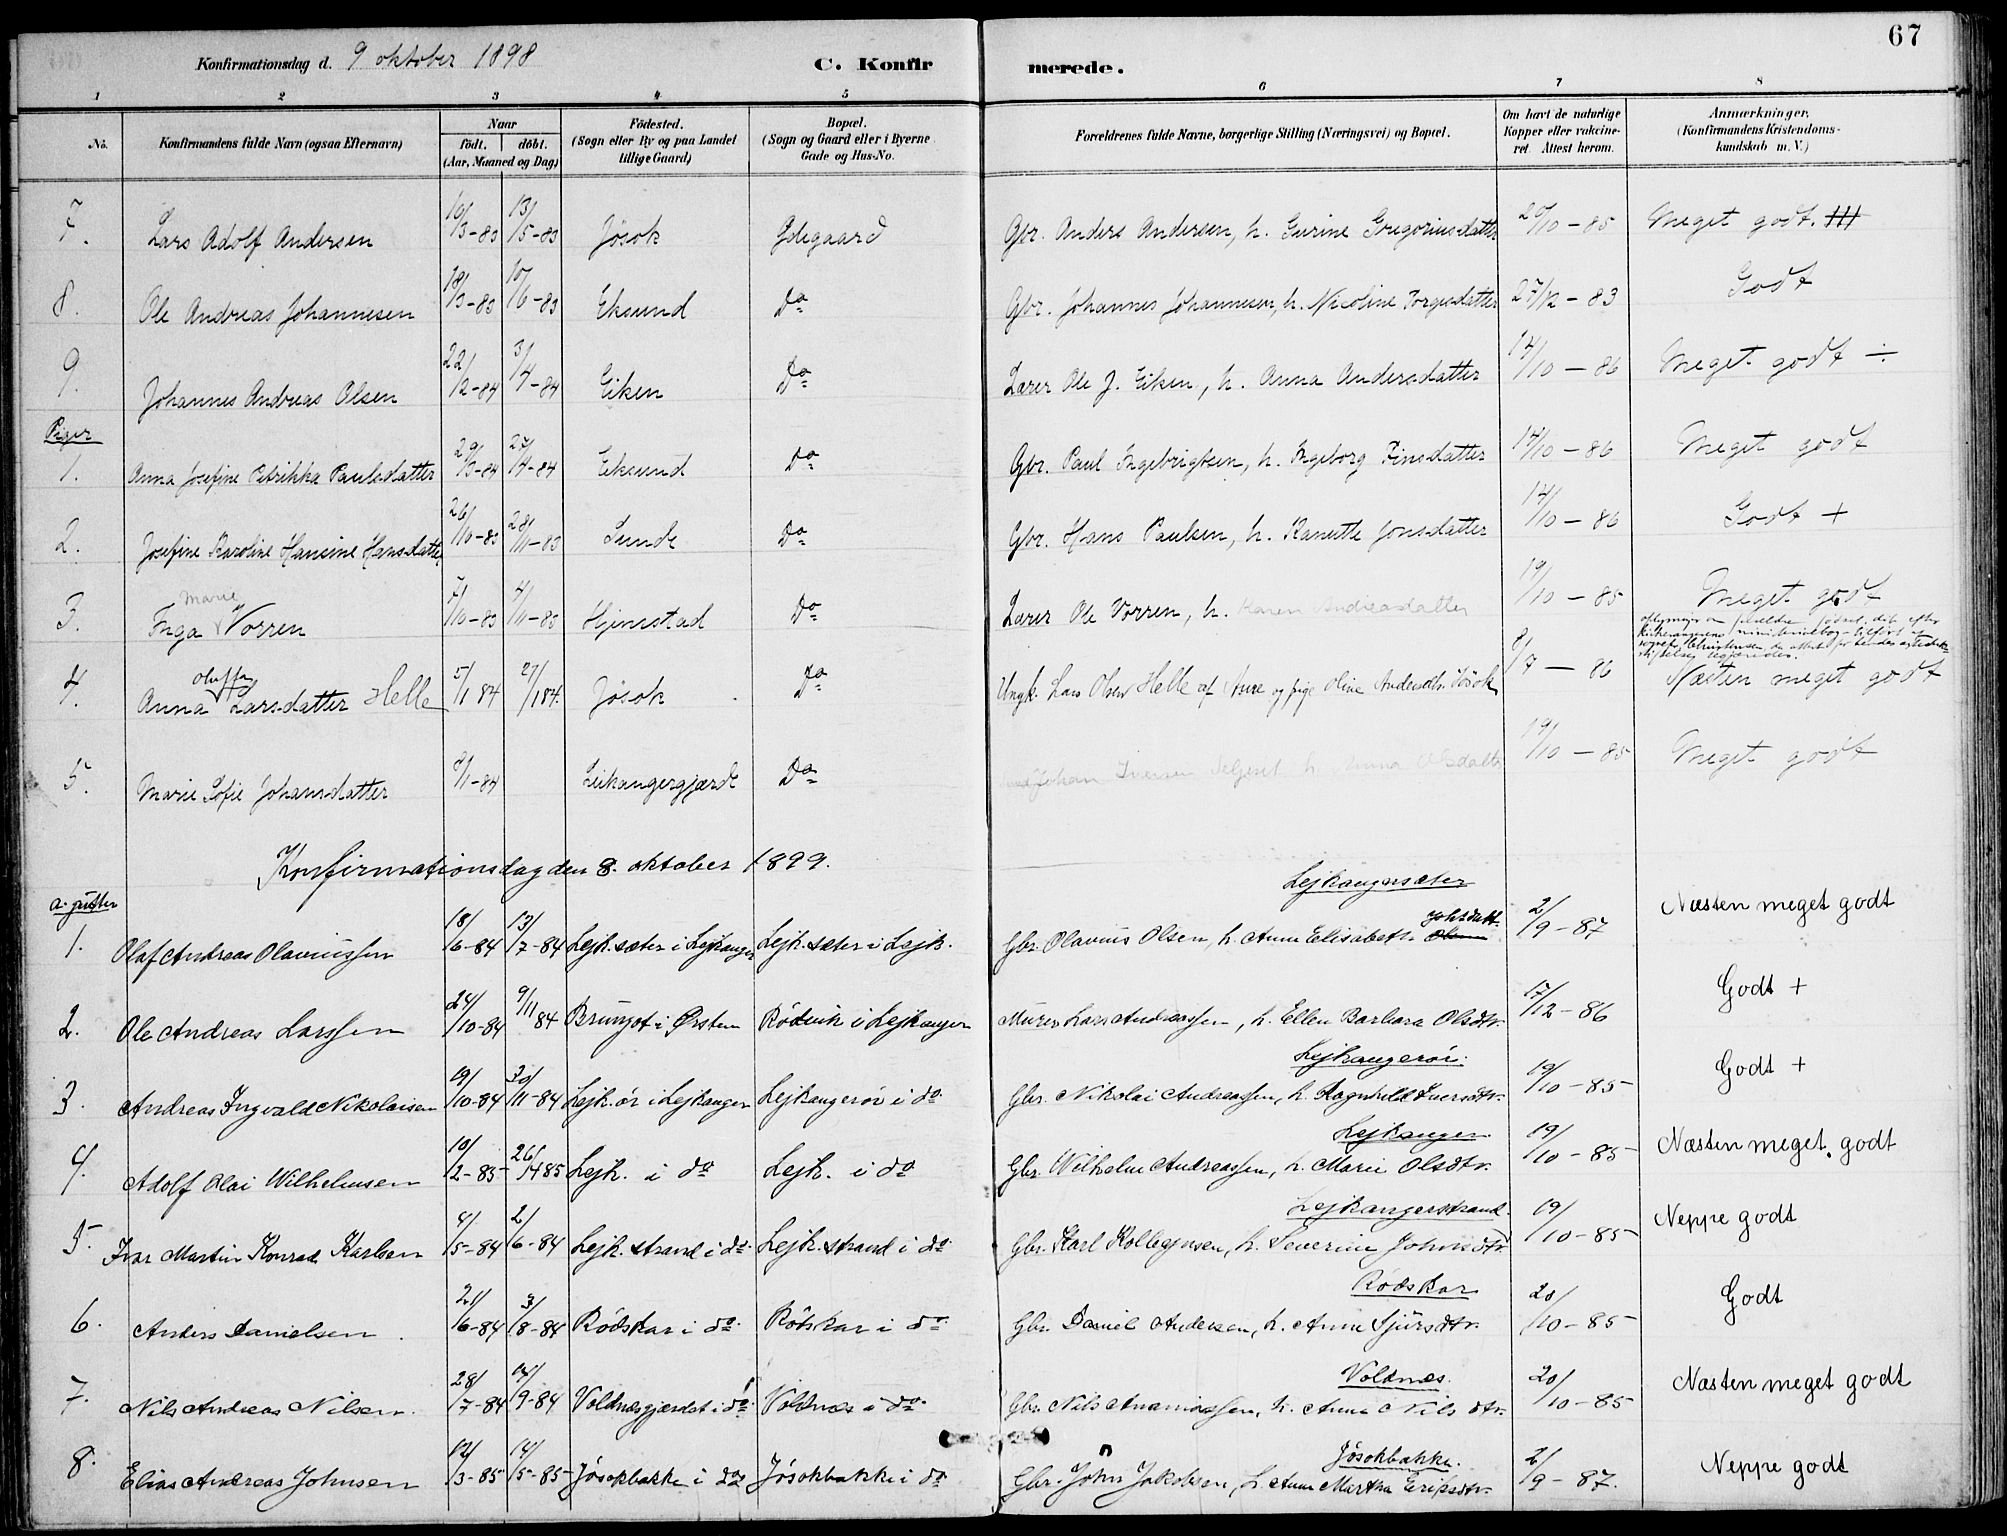 67
Konfirmationsdag d. 9 oktober 1898 C. Konfirmerede.
1 2 3 4 5 6 7 8
No. Konfirmandens fulde Navn (ogsaa Efternavn) Naar født. døbt. (Aar, Maaned og Dag) Fødested. (Sogn eller By og paa Landet tillige Gaard) Bopæl. (Sogn og Gaard eller i Byerne Gade og Hus-No. Forældrenes fulde Navne, borgerlige Stilling (Næringsvei) og Bopæl. Om havt de naturlige Kopper eller vaccineret. Attest herom. Anmærkninger. (Konfirmandens Kristendomskundskab m. V.)
7. Lars Adolf Andersen 10/3-83 13/5-83 Jøsok Ødegaard Gbr. Anders Andersen, h. Gurine Gregoriusdatter 20/10-85 Meget godt.
8. Ole Andreas Johannesen 18/3-83 10/6-83 Eksund Do Gbr. Johannes Johannesen, h. Nicoline Torgersdatter 27/12-83 Godt
9. Johannes Andreas Olsen 22/2-84 3/4-84 Eiken Do Lærer Ole J. Eiken, h. Anna Andersdatter 14/10-86 Meget godt ÷
Piger
1. Anna Josefine Petrikka Paulsdatter 29/3-84 27/4-84 Eiksund Do Gbr. Paul Ingebrigtsen, h. Ingeborg Finsdatter 14/10-86 Meget godt
2. Josefine Karoline Hansine Hansdatter 26/10-83 28/11-83 Sunde Do Gbr. Hans Paulsen, h. Kanutte Jonsdatter 14/10-86 Godt +
3. Inga Marie Vorren 7/10-83 4/11-83 Hjimstad Do Lærer Ole Vorren, h. Karen Andreasdatter 19/10-85 Meget godt
4. Anna Oluffa Larsdatter Helle 5/1 84 27/1 84. Jøsok Do Ungk. Lars Olsen Helle af Aure og pige Oline Andersdtr. Jøsok 8/7-86 Næsten meget godt
5. Marie Sofie Johansdatter 8/1-84 Leikangergjærde Do Johan Iversen Seljeset h. Anna Olsdatter 19/10-85 Meget godt
Konfirmationsdag den 8. oktober 1899.
a. gutter
1. Olaf Andreas Olaviussen 18/6-84 13/7-84 Lejk. sæter i Lejkanger Lejk. sæter i Lejk. Gbr. Olavius Olsen, h. Anne Elisabeth Johsdatt. Lejkangersæter 2/9-87 Næsten meget godt
2. Ole Andreas Larssen 24/10-84 9/11 84 Brungot i Ørsten Rødvik i Lejkanger Murer Lars Andreassen, h. Ellen Barbara Olsdtr. 17/12-86 Godt +
3. Andreas Ingvald Nikolaisen 19/10-84 30/11-84 Lejk.ør i Lejkanger Lejkangerør i do Gbr. Nikolai Andreassen, h. Ragnhild Iversdtr. Lejkangerør. 19/10-85 Godt +
4. Adolf Olai Wilhelmsen 10/2-85 26/4 85 Lejk. i do Lejk. i do Gbr. Wilhelm Andreassen, h. Marie Olsdtr. Lejkanger 19/10-85 Næsten meget godt
5. Ivar Martin Konrad Karlsen 4/5-84 2/6-84 Lejk. strand i do. Lejk. strand i do Gbr. Karl Kolbejnsen, h. Severine Johnsdtr. Lejkangerstrand. 19/10-85 Neppe godt
6. Anders Danielsen 21/6-84 3/8-84 Rødskar i do. Rødskar i do Gbr. Daniel Andersen, h. Anne Sjursdtr. Rødskar 20/10-85 Godt
7. Nils Andreas Nilsen. 28/7-84 14/9-84 Voldnæsgjærdet i do. Voldnæs i do. Gbr. Nils Ananiassen, h. Anne Nilsdtr. Voldnæs. 20/10-85 Næsten meget godt
8. Elias Andreas Johnsen 12/3-85 14/5-85 Jøsokbakke i do Jøsokbakke i do Gbr. John Jakobsen, h. Anne Martha Eriksdtr. Jøsokbakke. 2/9-87. Neppe godt